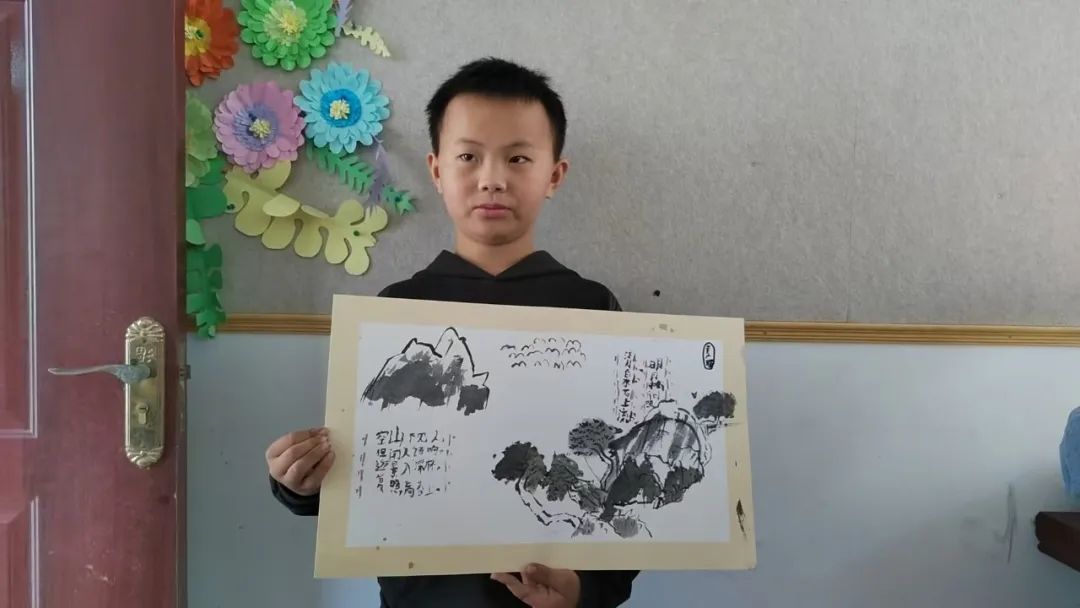 明月松间照
清泉石上流
空山不见人
但闻人语响
返景入深林
复照青苔上